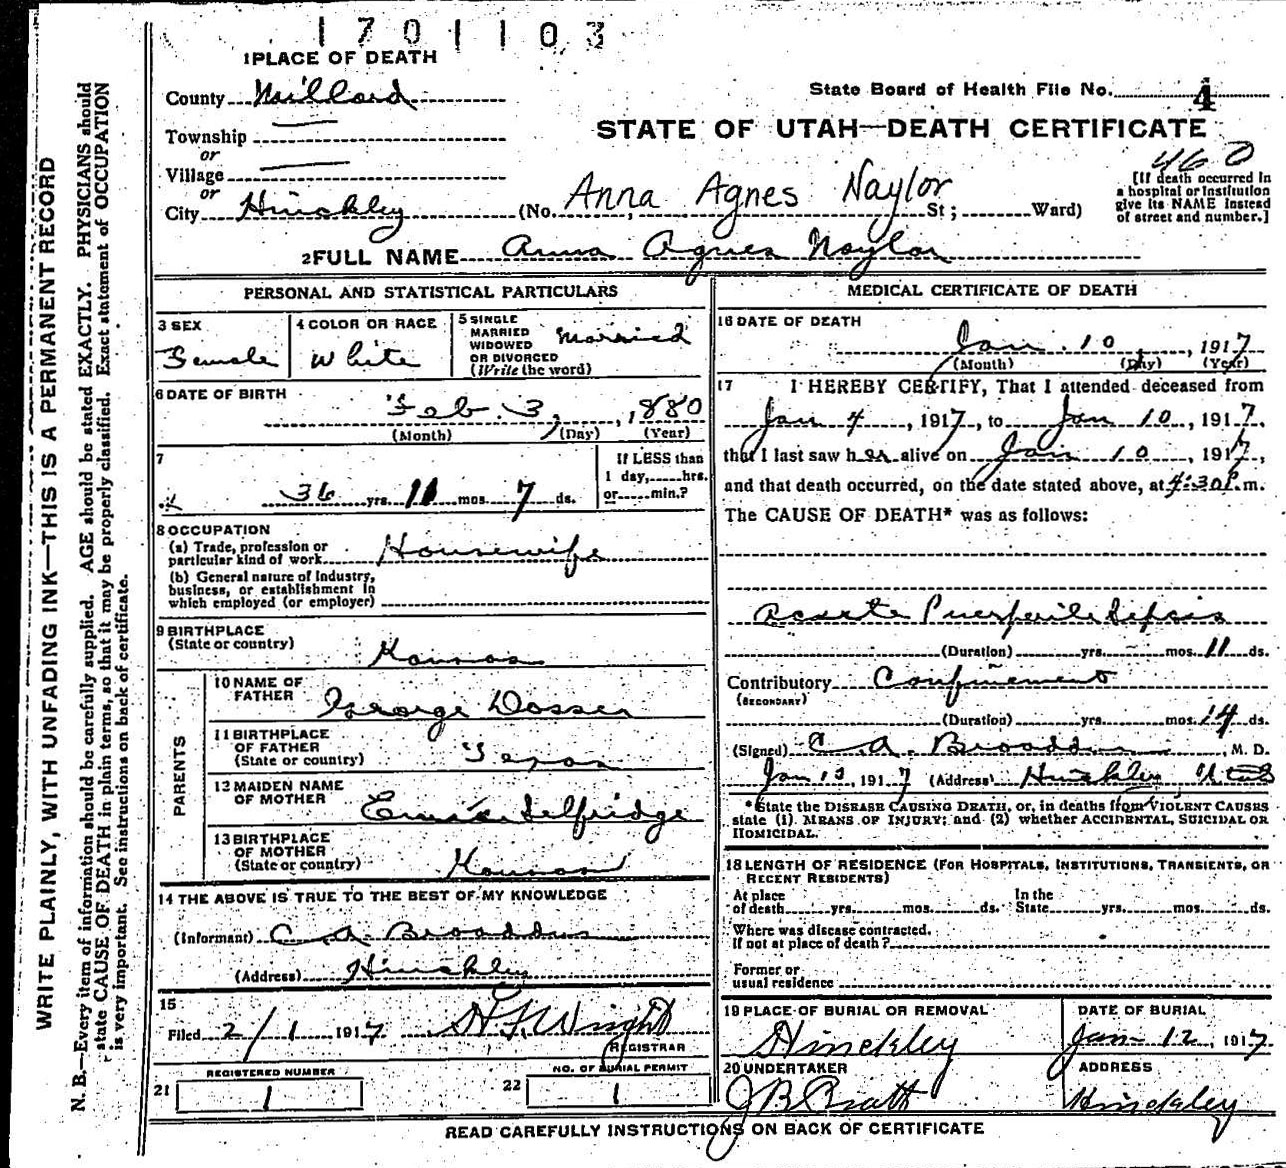 1701103
1 PLACE OF DEATH
County Millard
State Board of Health File No. 4
Township
STATE OF UTAH—DEATH CERTIFICATE
or
Village
460
or
City Hinckley (No. Anna Agnes Naylor St; Ward)
[If death occurred in
a hospital or institution
give its NAME instead
of street and number.]
2 FULL NAME Anna Agnes Naylor
PERSONAL AND STATISTICAL PARTICULARS
3 SEX
Female
4 COLOR OR RACE
White
5 SINGLE
MARRIED
WIDOWED
OR DIVORCED
(Write the word)
Married
6 DATE OF BIRTH
Feb. 3, 1880
(Month) (Day) (Year)
7
36 yrs. 11 mos. 7 ds.
If LESS than
1 day, hrs.
or min.?
8 OCCUPATION
(a) Trade, profession or
particular kind of work Housewife
(b) General nature of industry,
business, or establishment in
which employed (or employer)
9 BIRTHPLACE
(State or country)
Kansas
PARENTS
10 NAME OF
FATHER
George Dosser
11 BIRTHPLACE
OF FATHER
(State or country)
Texas
12 MAIDEN NAME
OF MOTHER
Selfridge
13 BIRTHPLACE
OF MOTHER
(State or country)
Kansas
14 THE ABOVE IS TRUE TO THE BEST OF MY KNOWLEDGE
(Informant) C A Broaddus
(Address) Hinckley
15
Filed 2/1 1917 Wright
REGISTRAR
REGISTERED NUMBER
21 1
NO. OF BURIAL PERMIT
22 1
MEDICAL CERTIFICATE OF DEATH
16 DATE OF DEATH
Jan. 10, 1917
(Month) (Day) (Year)
17 I HEREBY CERTIFY, That I attended deceased from
Jan 4, 1917, to Jan 10, 1917.
that I last saw her alive on Jan 10, 1917,
and that death occurred, on the date stated above, at 4:30 P.m.
The CAUSE OF DEATH* was as follows:
Acute Puerperile Sepsis
(Duration) yrs. mos. 11 ds.
Contributory Confinement
(SECONDARY)
(Duration) yrs. mos. 14 ds.
(Signed) C A. Broaddus, M. D.
Jan 13, 1917 (Address) Hinckley Utah
*State the DISEASE CAUSING DEATH, or, in deaths from VIOLENT CAUSES
state (1) MEANS OF INJURY; and (2) whether ACCIDENTAL, SUICIDAL OR
HOMICIDAL.
18 LENGTH OF RESIDENCE (FOR HOSPITALS, INSTITUTIONS, TRANSIENTS, OR
RECENT RESIDENTS)
At place
of death yrs. mos. ds.
In the
State yrs. mos. ds.
Where was disease contracted,
If not at place of death?
Former or
usual residence
19 PLACE OF BURIAL OR REMOVAL
Hinckley
DATE OF BURIAL
Jan 12, 1917
20 UNDERTAKER
J B Pratt
ADDRESS
Hinckley
READ CAREFULLY INSTRUCTIONS ON BACK OF CERTIFICATE
WRITE PLAINLY, WITH UNFADING INK—THIS IS A PERMANENT RECORD
N. B.—Every item of information should be carefully supplied. AGE should be stated EXACTLY. PHYSICIANS should
state CAUSE OF DEATH in plain terms, so that it may be properly classified. Exact statement of OCCUPATION
is very important. See instructions on back of certificate.